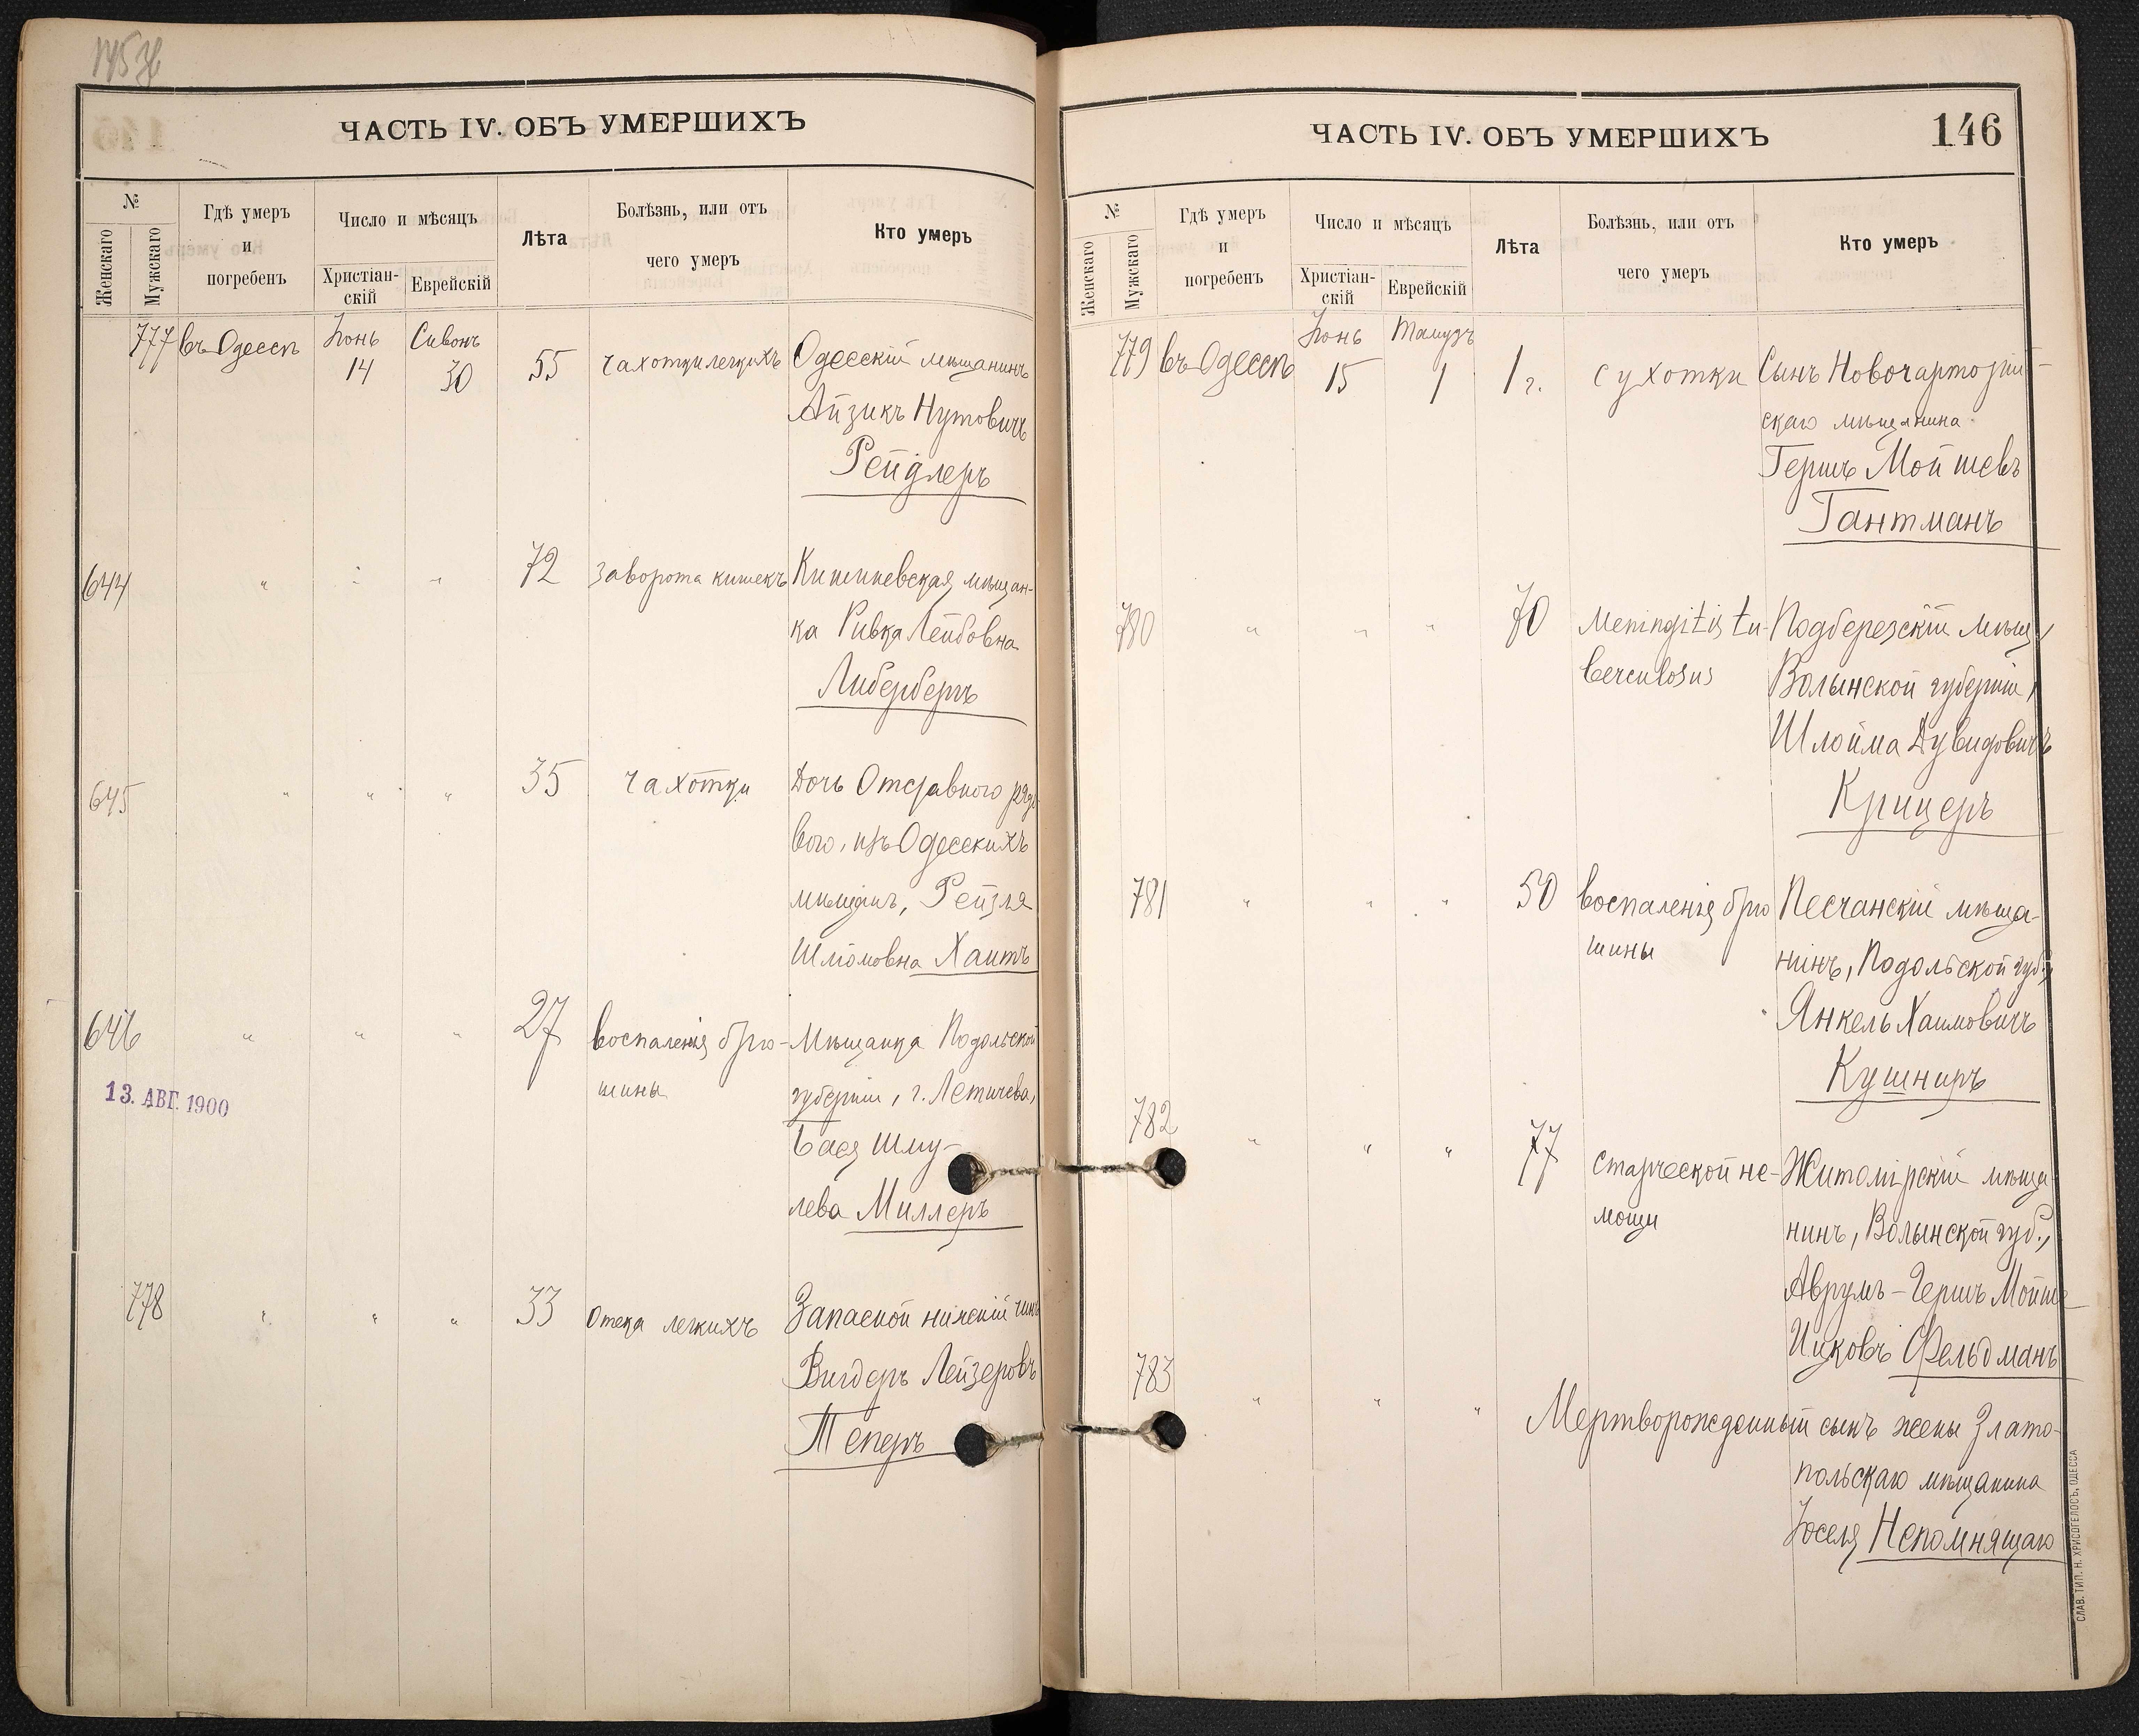 ЧАСТЬ IV. ОБЪ УМЕРШИХЪ
№
Женскаго
Мужскаго
Гдѣ умеръ
и
погребенъ
Число и мѣсяцъ
Христіан-
скій
Еврейскій
Лѣта
Болѣзнь, или отъ
чего умеръ
Кто умеръ
777 въ Одессѣ Іюнь Сивонъ
14 30 55 чахотки легкихъ Одесскій мѣщанинъ
Айзикъ Нутовичъ
Рейдлеръ
644 " " " 72 заворота кишекъ Кишиневская мѣщан-
ка Ривка Лейбовна
Либерберъ
645 " " " 35 чахотки Дочь Отставного рядо-
вого, изъ Одесскихъ
мѣщанъ, Рейзля
Шліомовна Хаитъ
646 " " " 27 воспаленія брю- Мѣщанка Подольской
шины губерніи, г. Летичева,
13. АВГ. 1900
Бася Шму-
лева Миллеръ
778 " " " 33 Отека легкихъ Запасной нижній чинъ
Вигдеръ Лейзеровъ
Теперъ
ЧАСТЬ IV. ОБЪ УМЕРШИХЪ
146
№
Женскаго
Мужскаго
Гдѣ умеръ
и
погребенъ
Число и мѣсяцъ
Христіан-
скій
Еврейскій
Лѣта
Болѣзнь, или отъ
чего умеръ
Кто умеръ
779 въ Одессѣ Іюнь Тамузъ
15 1 1 г. сухотки Сынъ Новочарторій-
скаго мѣщанина
Гершъ Мойшевъ
Гантманъ
780 " " " 70 Meningitis tu- Подберезскій мѣщ.,
berculosus Волынской губерніи,
Шлойма Дувидовичъ
Крицеръ
781 " " " 50 воспаленія брю Песчанскій мѣща-
шины нинъ, Подольской губ.,
Янкель Хаимовичъ
Кушниръ
782 " " " 77 старческой не- Житомірскій мѣща-
мощи нинъ, Волынской губ.,
Аврумъ-Гершъ Мойше
Ицковъ Фельдманъ
783 " " " Мертворожденный сынъ жены Злато-
польскаго мѣщанина
Іоселя Непомнящаго
СЛАВ. ТИП. Н. ХРИСОГЕЛОСЪ, ОДЕССА